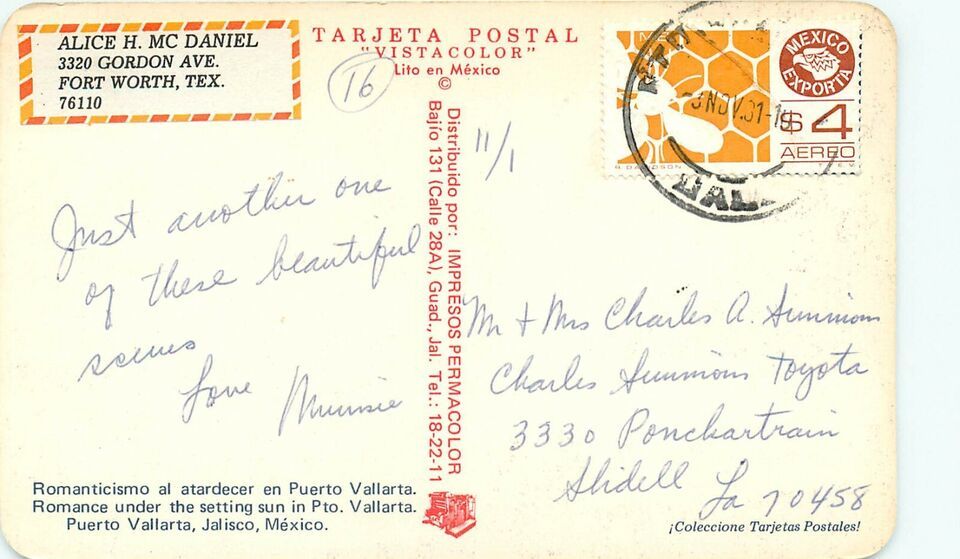 ALICE H. MC DANIEL
3320 GORDON AVE.
FORT WORTH, TEX.
76110
TARJETA POSTAL
"VISTACOLOR"
Lito en México
©
16
11/1
Just another one
of these beautiful
scenes
Love
Romanticismo al atardecer en Puerto Vallarta.
Romance under the setting sun in Pto. Vallarta.
Puerto Vallarta, Jalisco, México.
Distribuido por: IMPRESOS PERMACOLOR
Bajío 131 (Calle 28A), Guad., Jal. Tel.: 18-22-11
MEXICO
EXPORTA
$4
AEREO
NOV.81
Mr + Mrs Charles A. Simmons
Charles Simmons Toyota
3330 Ponchartrain
Slidell La 70458
¡Coleccione Tarjetas Postales!